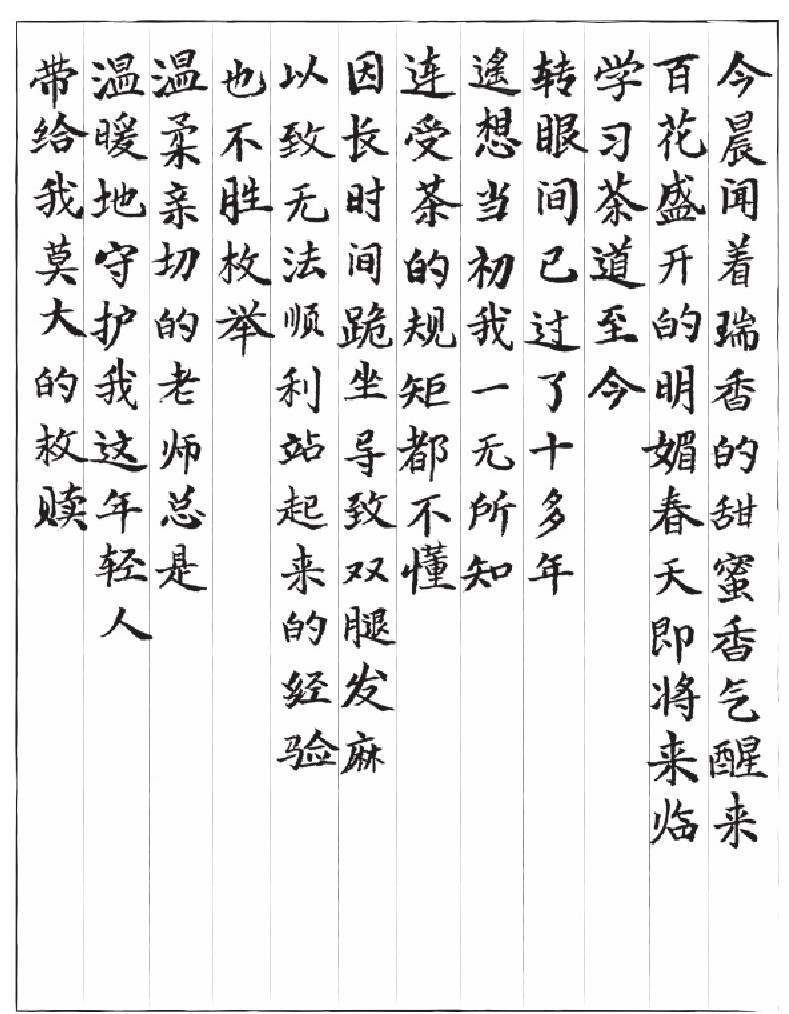 今晨闻着瑞香的甜蜜香气醒来
百花盛开的明媚春天即将来临
学习茶道至今
转眼间已过了十多年
遥想当初我一无所知
连受茶的规矩都不懂
因长时间跪坐导致双腿发麻
以致无法顺利站起来的经验
也不胜枚举
温柔亲切的老师总是
温暖地守护我这年轻人
带给我莫大的救赎